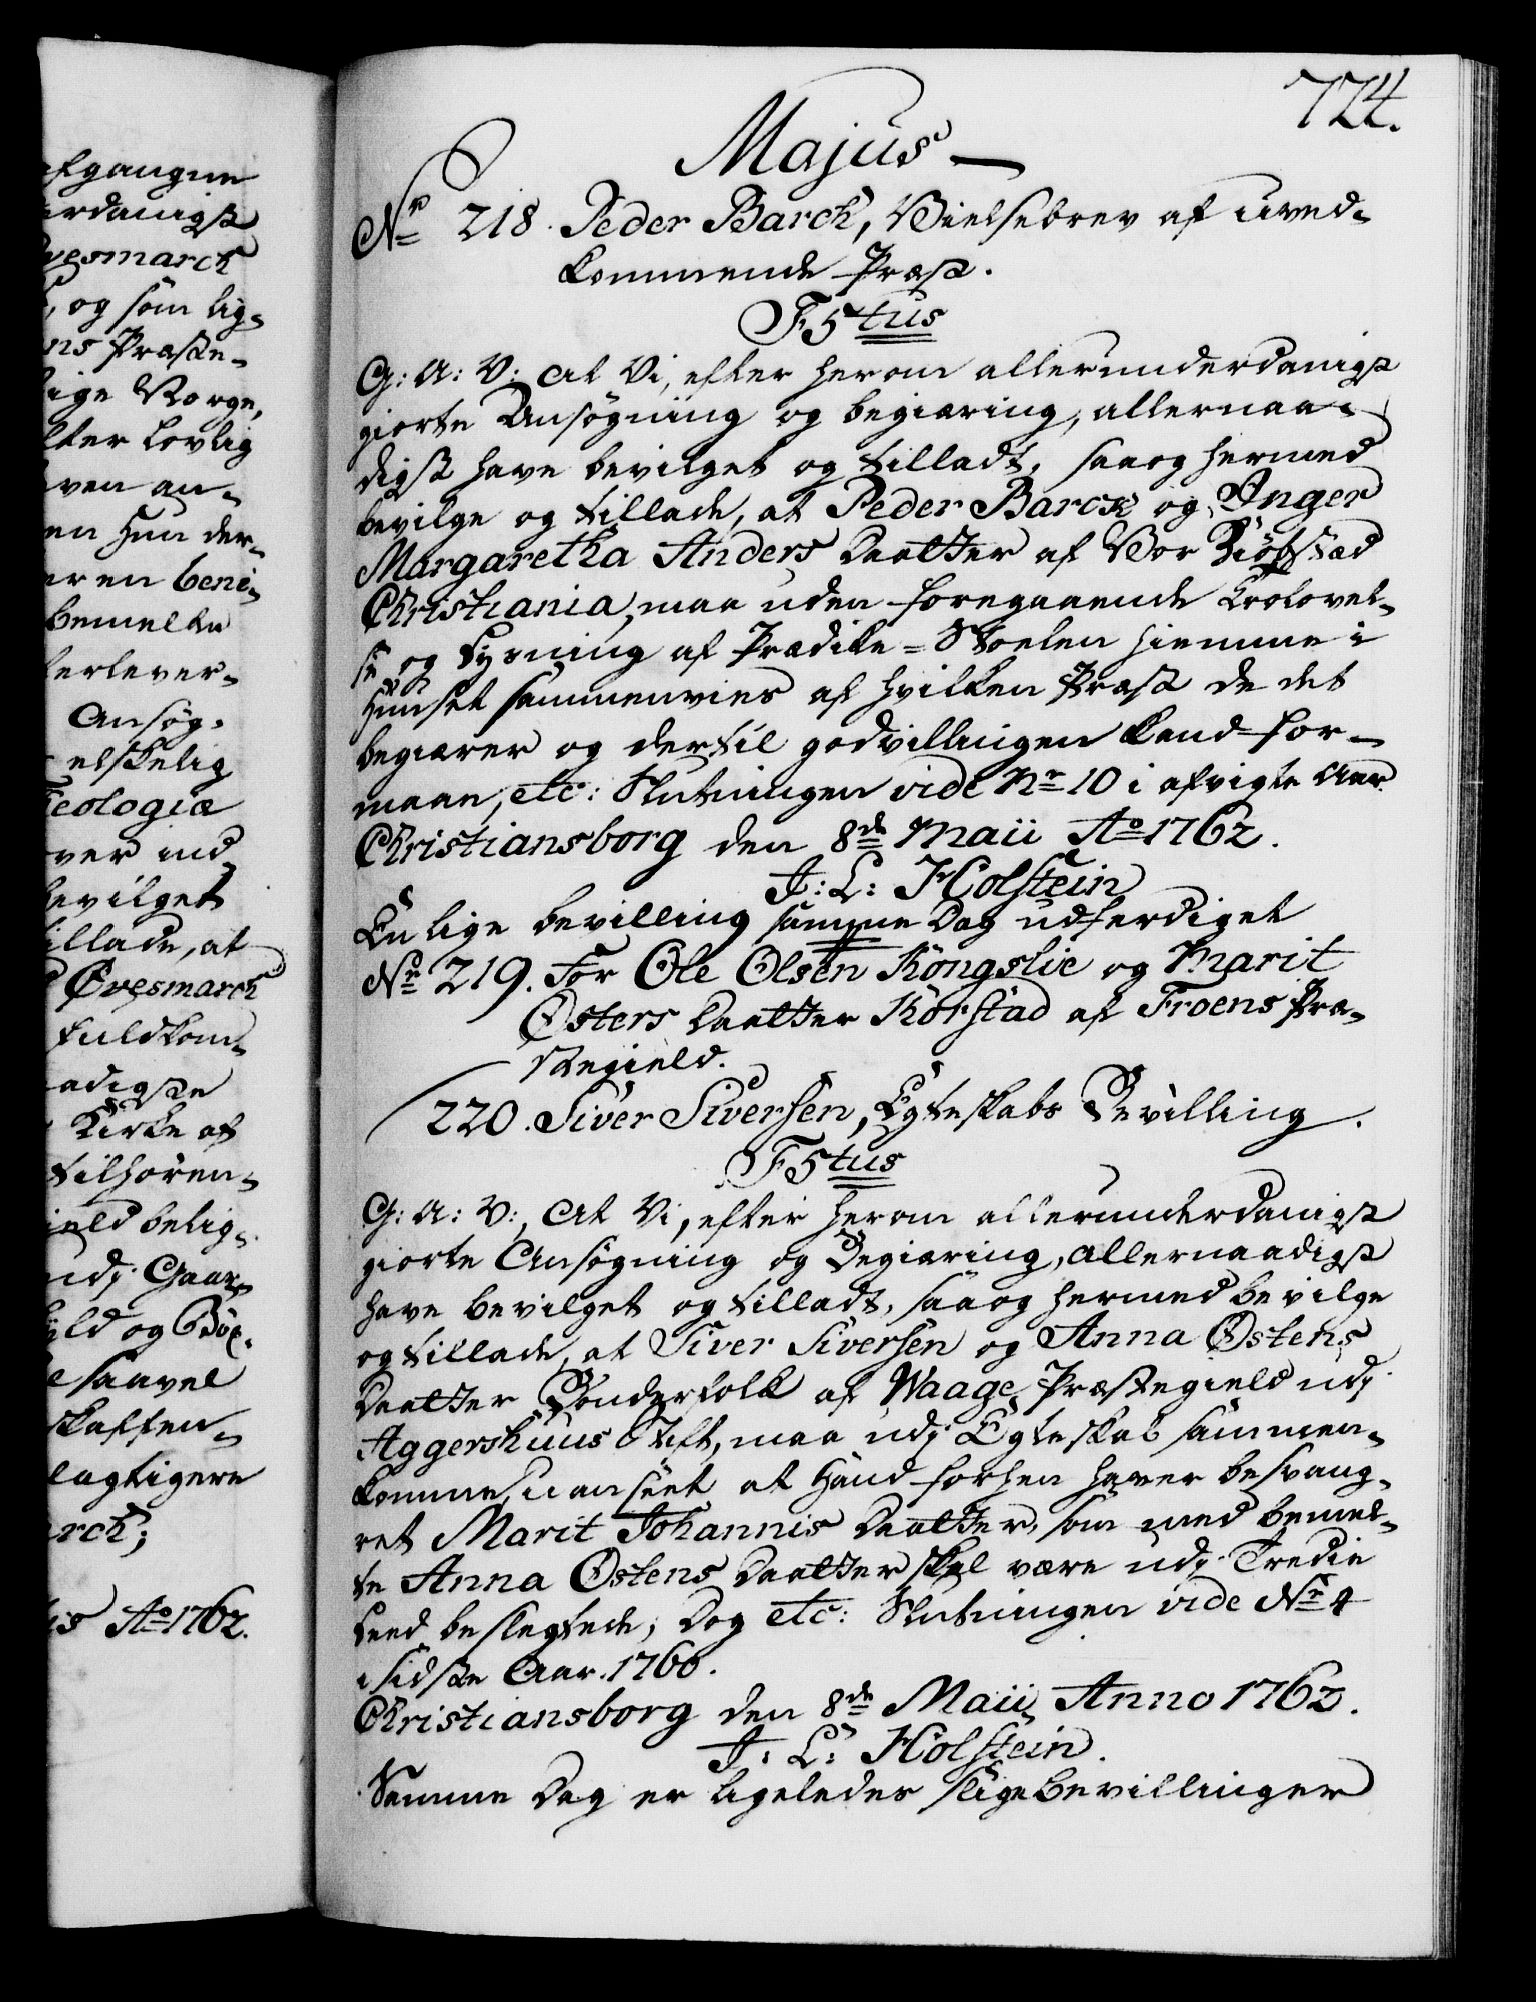 724.
Majus
Nr 218. Peder Barch, Vielsebrev af uved-
kommende Præst.
F5tus
G: A: V: At Vi, efter herom allerunderdanigst
giorte Ansøgning og begiæring, allernaa-
digst have bevilget og tilladt, saa og hermed
bevilge og tillade, at Peder Barch og Inger
Margaretha Anders Daatter af Vor Kiøbstæd
Christiania, maa uden foregaaende Trolovel-
se og Lysning af Prædike-Stoelen hiemme i
Huuset sammenvies af hvilken Præst de det
begiærer og dertil godvilligen kand for-
maae, etc: Slutningen vide Nr 10 i afvigte Aar.
Christiansborg den 8de Maii Ao 1762.
J: L: Holstein
En lige bevilling samme Dag udferdiget
Nr 219. For Ole Olsen Kongslie og Marit
Østers Daatter Korstad af Froens Præ-
stegield.
220. Siver Siversen, Egteskabs Bevilling.
F5tus
G: A: V:, At Vi, efter herom allerunderdanigst
giorte Ansøgning og Begiæring, allernaadigst
have bevilget og tilladt, saa og hermed bevilge
og tillade, at Siver Siversen og Anna Østens
Daatter Bønderfolk af Waage Præstegield udj
Aggershuus Stift, maa udj Egteskab sammen-
komme, uanseet at Hand forhen haver besvang-
ret Marit Johannis Daatter, som med bemel-
te Anna Østens Daatter skal være udj Tredie
Leed beslegtede; Dog etc: Slutningen vide Nr 4
i sidste Aar. 1760.
Christiansborg den 8de Maii Anno 1762.
J: L: Holstein.
Samme Dag er ligeledes slige bevillinger
afgangne
erdanigst
vesmarch
, og som lig-
ns Præste-
ige Norge,
fter Lovlig
ven an-
en Hun der-
er en bene-
bemelte
terlever-
Ansøg-
elskelig
eologiæ
ver ind-
bevilget
illade, at
Øvesmarch
fuldkom-
aadigste
Kirke af
tilhøren-
ield belig-
udj Gaar-
yld og Bøx-
e saavel
skaffen-
lagtigere
rch;
is Ao 1762.